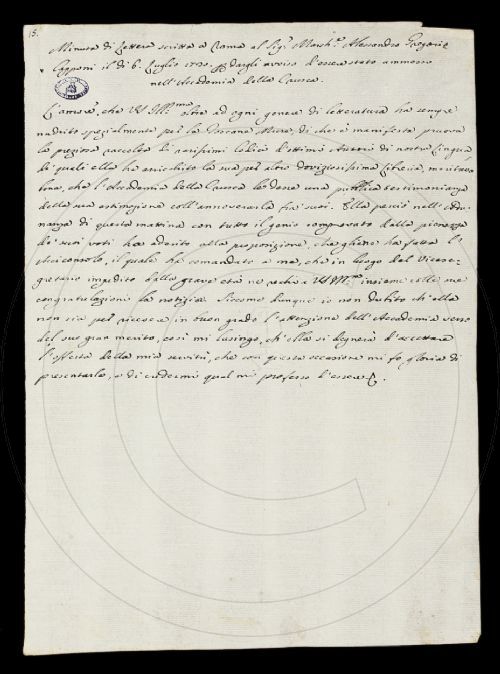 15.
Minuta di Lettera scritta a Roma al Sig.r March.e Alessandro Gregorio
Capponi il dì 6. Luglio 1730. p dargli avviso d'essere stato ammesso
nell'Accademia della Crusca.
L'amore, che VS Ill.ma oltre ad ogni genere di letteratura ha sempre
nudrito spezialmente pel la Toscana, di che è manifesta prova
la preziosa raccolta de' rarissimi Codici d'ottimi Autori di nostra Lingua
de' quali ella ha arricchito la sua per altro doviziosissima Libreria, meritava
bene, che l'Accademia della Crusca le desse una pubblica testimonianza
della sua estimazione coll'annoverarla fra' suoi. Ella perciò nell'Adu-
nanza di questa mattina con tutto il genio comprovato dalla pienezza
de' suoi voti ha aderito alla proposizione, che gliene ha fatta l'
Arciconsolo, il quale ha comandato a me, che in luogo del Vicese-
gretario impedito dalla grave età ne rechi a VS Ill.ma insieme colle mie
congratulazioni la notizia. Siccome dunque io non dubito ch'ella
non sia per ricevere in buon grado l'attenzione dell'Accademia verso
del suo gran merito, così mi lusingo, ch'ella si degnerà d'accettare
l'offerta della mia servitù, che con questa occasione mi fo gloria di
presentarle, e di credermi qual mi professo d'essere